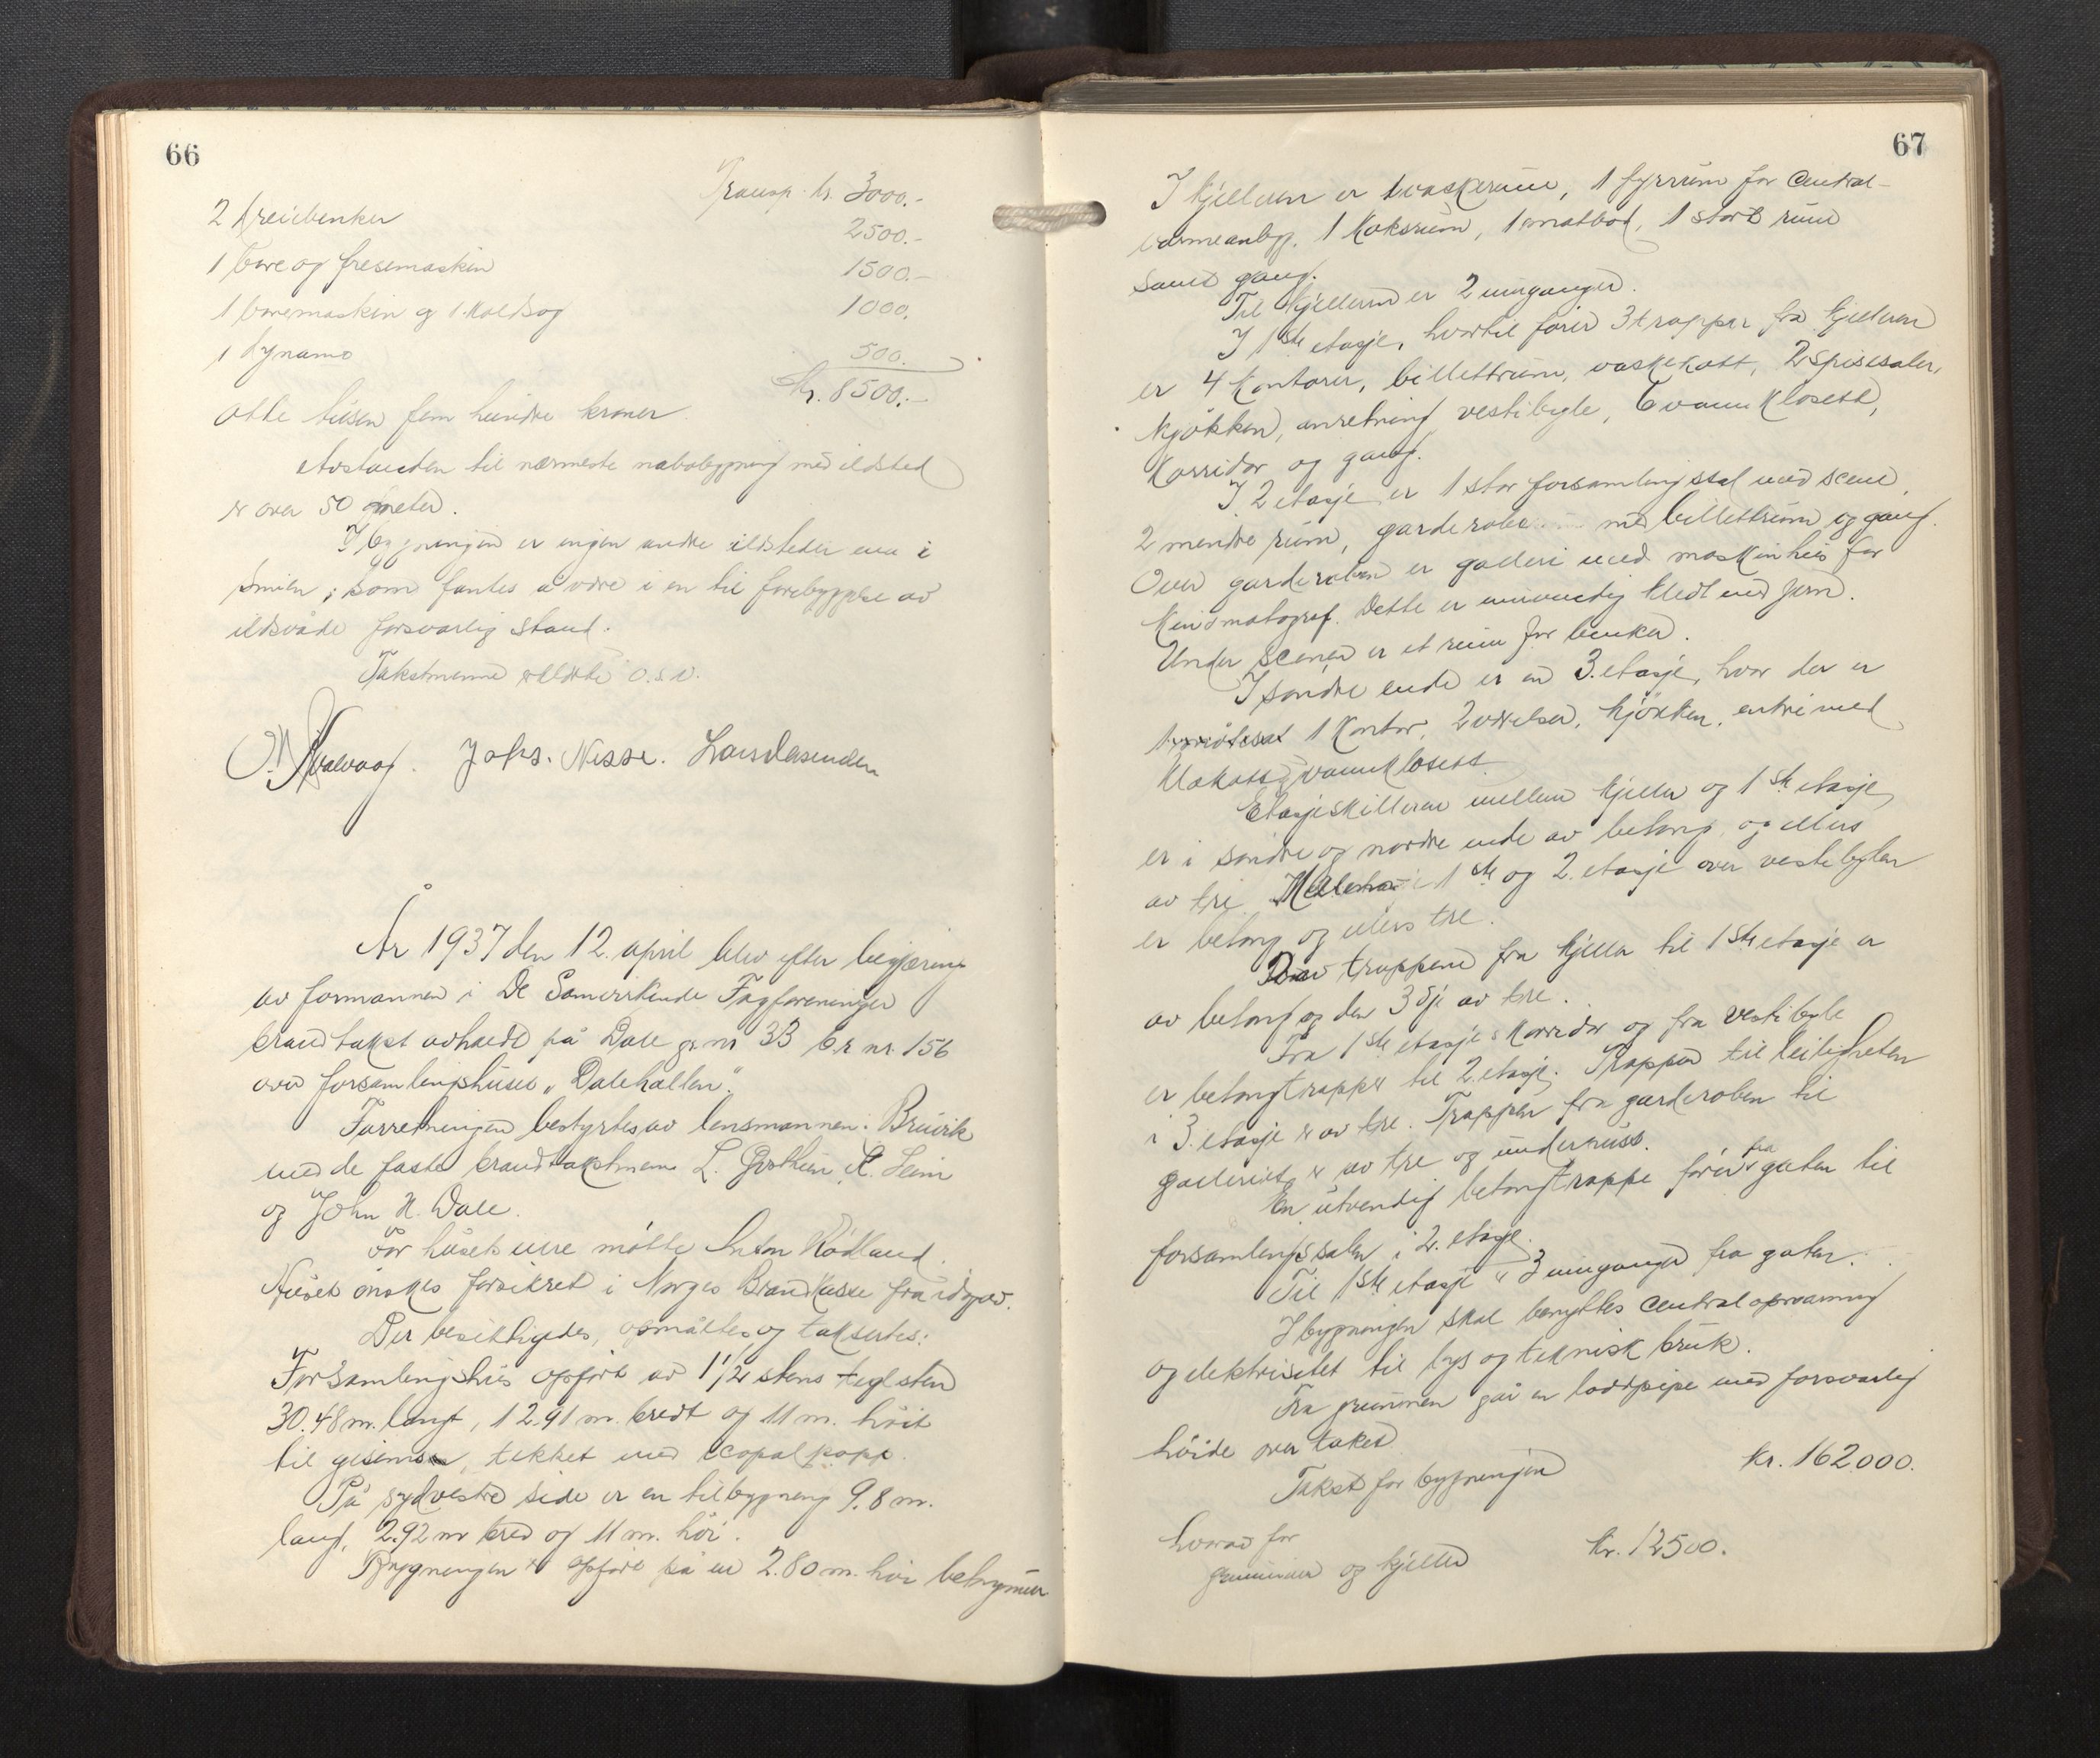 66
Transp. kr. 3000.-
2 dreiebenker 2500.-
1 bore og fresemaskin 1500.-
1 boremaskin og 1 koldsag 1000.
1 dynamo 500.
Kr. 8500.-
otte tusen fem hundre kroner
Avstanden til nærmeste nabobygning med ildsted
er over 50 meter.
I bygningen er ingen andre ildsteder enn i
smien, som fantes å være i en til forebyggelse av
ildsvåde forsvarlig stand.
Takstmennene o.s.v.
Johs. Nesse.
År 1937 den 12. april blev efter begjæring
av formannen i De Samvirkende Fagforeninger
brandtakst avholdt på Dale gr. nr 33 br. nr. 156
over forsamlingshuset „Dalehallen".
Forretningen bestyrtes av lensmannen i Bruvik
med de faste brandtakstmenn L. K. Heim
og John N. Dale.
For husets eiere møtte Anton Rödland.
Huset ønskes forsikret i Norges Brandkasse fra idag av.
Der besiktigedes, opmåltes og taksertes:
Forsamlingshus opført av 1 1/2 stens teglsten
30.48 m. langt, 12.91 m. bredt og 11 m. høit
til gesimsen, tekket med copalpapp.
På sydvestre side er en tilbygning 9.8 m.
lang, 2.92 m bred og 11 m. høi.
Bygningen er opført på en 2.80 m. høi betongmur
67
I kjelleren er 1 vaskerum, 1 fyrrum for Central-
varmeanlegg. 1 Koksrum, 1 matbod, 1 stort rum
samt gang.
Til kjelleren er 2 innganger.
I 1ste etasje, hvortil fører 3 trapper fra kjelleren
er 4 Kontorer, billettrum, vaskekott, 2 spisesaler,
kjøkken, anretning vestibyle, 6 vannklosett,
Korridor og gang.
I 2 etasje er 1 stor forsamlingssal med scene,
2 mindre rum, garderobe med billettrum og gang.
Over garderoben er galleri med maskinhus for
Kinomatograf. Dette er innvendig kledt med jern.
Under scenen er et rum for benker.
I søndre ende er en 3. etasje, hvor der er
1 møtesal 1 Kontor, 2 værelser, kjøkken, entre med
klækott, vannklosett.
Etasjeskilleren mellem kjeller og 1ste etasje
er i søndre og nordre ende av betong, og ellers
av tre. Mellem 1ste og 2. etasje over vestibylen
er betong og ellers tre.
2 av trappene fra kjeller til 1ste etasje er
av betong og den 3dje av tre.
Fra 1ste etasjes Korridor og fra vestibyle
er betongtrapper til 2. etasje. Trappen til leiligheten
i 3. etasje er av tre. Trappen fra garderoben til
galleriet er av tre og underpuss.
En utvendig betongtrappe fører fra gaten til
forsamlingssalen i 2. etasje.
Til 1ste etasje er 3 innganger fra gaten.
I bygningen skal benyttes centralopvarming
og elektrisitet til lys og teknisk bruk.
Fra grunnen går en loddpipe med forsvarlig
høide over taket.
Takst for bygningen kr. 162000.
hvorav for
grunnmur og kjeller kr. 12500.